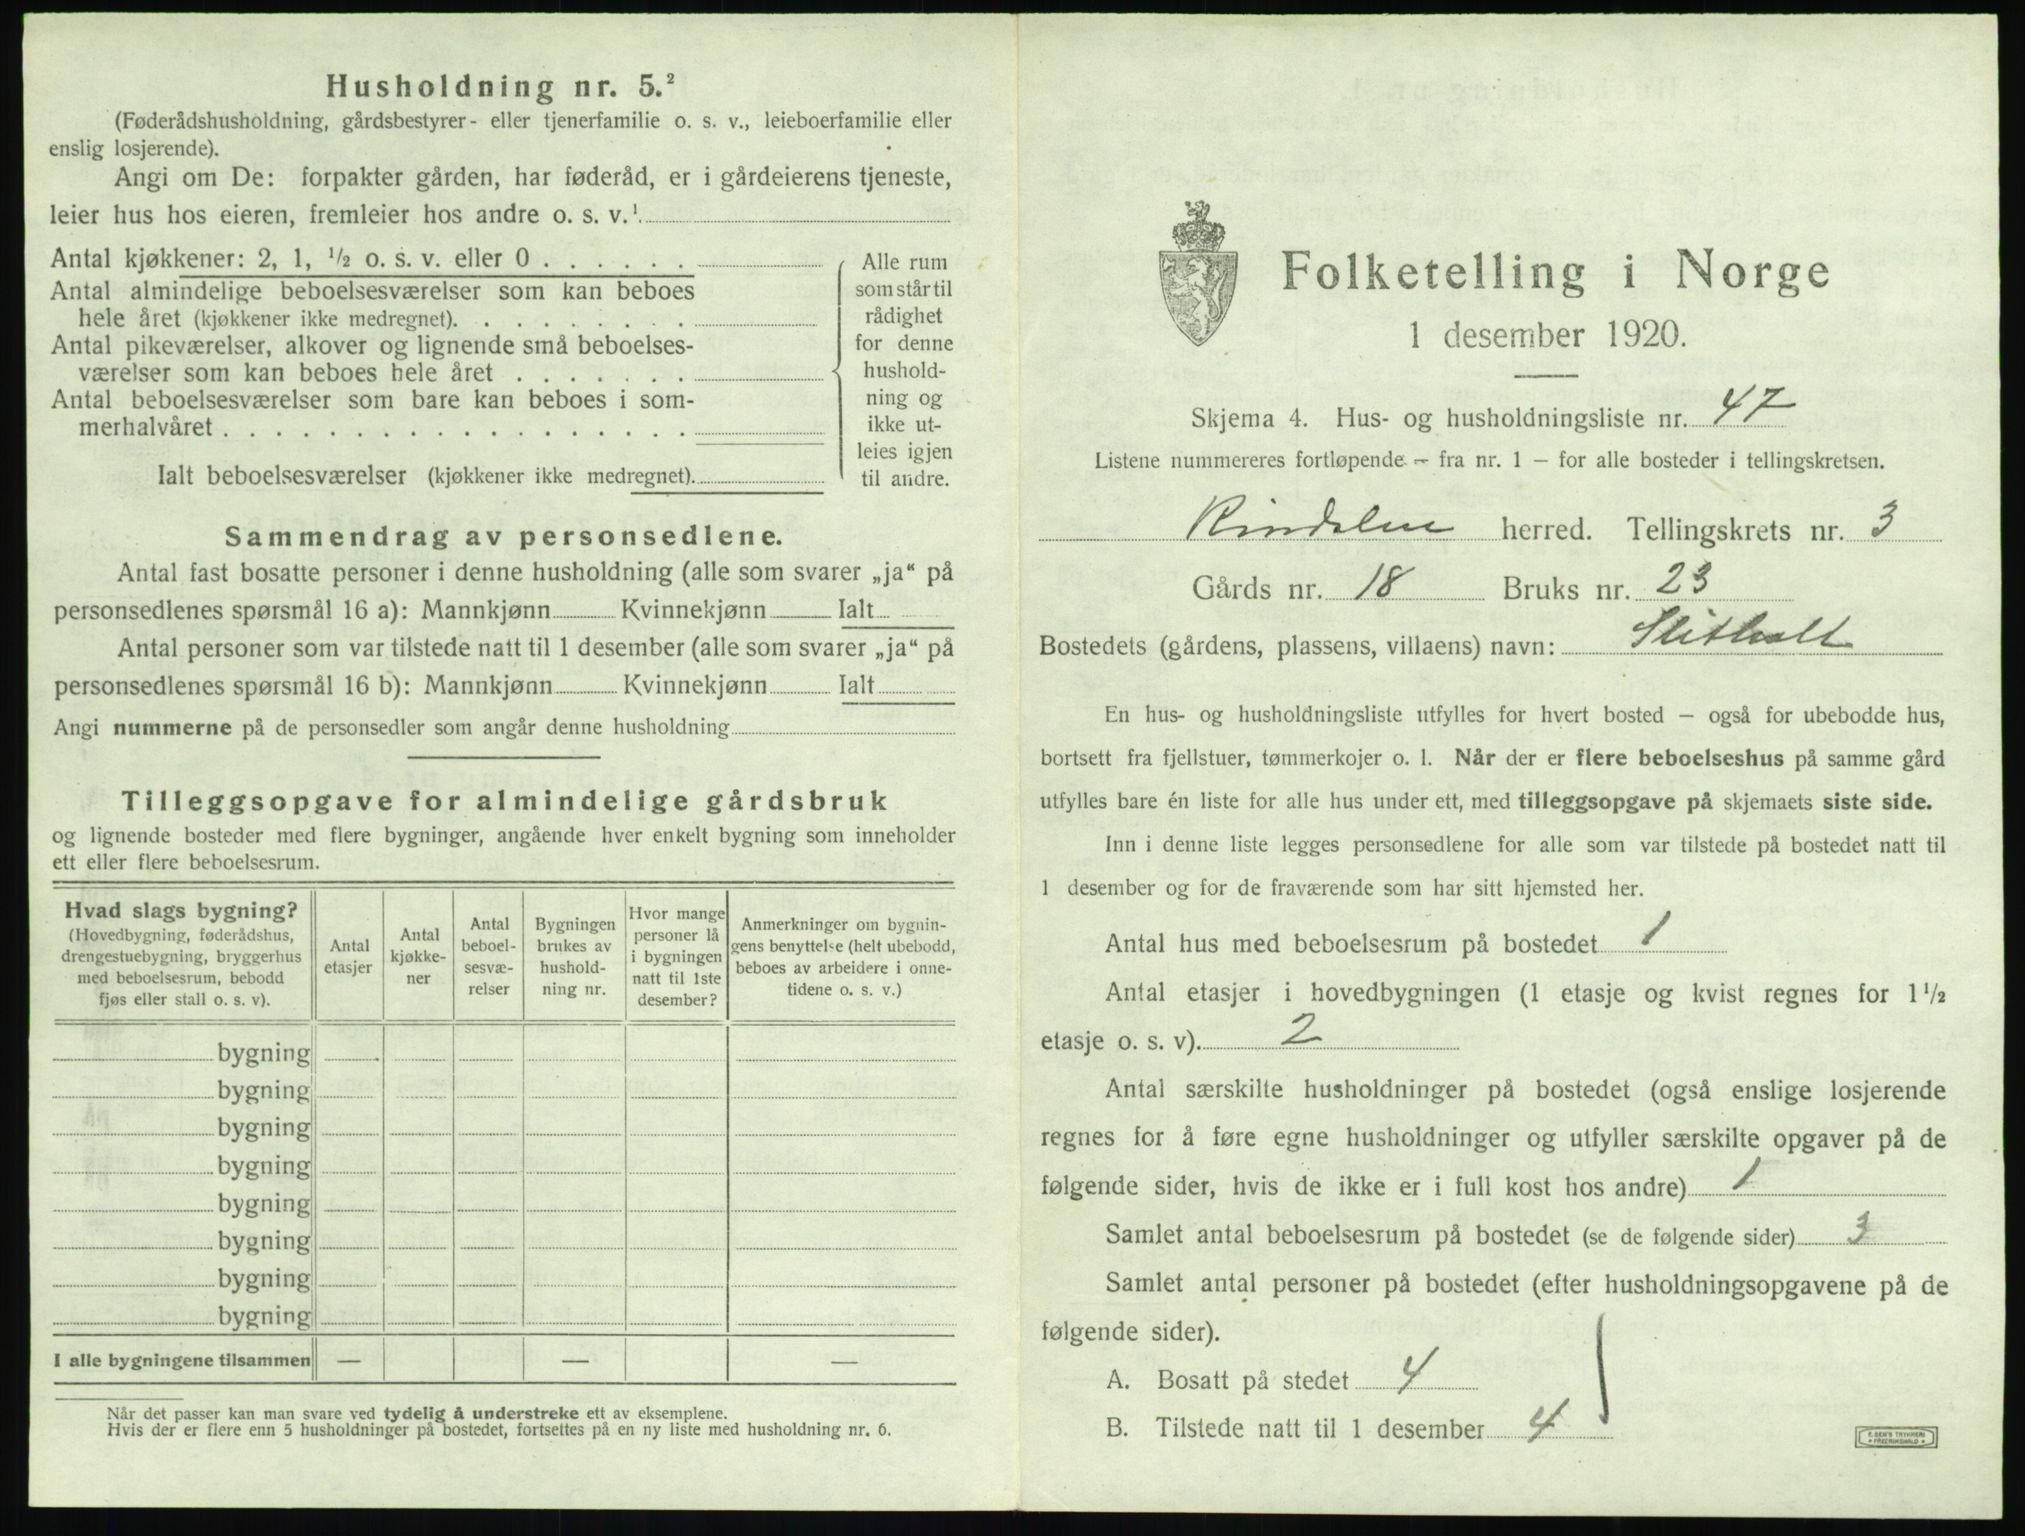 Husholdning nr. 5.²
(Føderådshusholdning, gårdsbestyrer- eller tjenerfamilie o. s. v., leieboerfamilie eller
enslig losjerende).
Angi om De: forpakter gården, har føderåd, er i gårdeierens tjeneste,
leier hus hos eieren, fremleier hos andre o. s. v.¹
Antal kjøkkener: 2, 1, ½ o. s. v. eller 0 . . . . . .
Antal almindelige beboelsesværelser som kan beboes
hele året (kjøkkener ikke medregnet). . . . . . . . .
Antal pikeværelser, alkover og lignende små beboelses-
værelser som kan beboes hele året . . . . . . .
Antal beboelsesværelser som bare kan beboes i som-
merhalvåret . . . . . . . . . . . . . . . . . .
Ialt beboelsesværelser (kjøkkener ikke medregnet).
Alle rum
som står til
rådighet
for denne
hushold-
ning og
ikke ut-
leies igjen
til andre.
Sammendrag av personsedlene.
Antal fast bosatte personer i denne husholdning (alle som svarer „ja“ på
personsedlenes spørsmål 16 a): Mannkjønn Kvinnekjønn Ialt
Antal personer som var tilstede natt til 1 desember (alle som svarer „ja“ på
personsedlenes spørsmål 16 b): Mannkjønn Kvinnekjønn Ialt
Angi nummerne på de personsedler som angår denne husholdning
Tilleggsopgave for almindelige gårdsbruk
og lignende bosteder med flere bygninger, angående hver enkelt bygning som inneholder
ett eller flere beboelsesrum.
Hvad slags bygning?
(Hovedbygning, føderådshus,
drengestuebygning, bryggerhus
med beboelsesrum, bebodd
fjøs eller stall o. s. v).
Antal
etasjer
Antal
kjøkke-
ner
Antal
beboel-
sesvæ-
relser
Bygningen
brukes av
hushold-
ning nr.
Hvor mange
personer lå
i bygningen
natt til 1ste
desember?
Anmerkninger om bygnin-
gens benyttelse (helt ubebodd,
beboes av arbeidere i onne-
tidene o. s. v.)
bygning
bygning
bygning
bygning
bygning
bygning
bygning
bygning
I alle bygningene tilsammen — — —
Når det passer kan man svare ved tydelig å understreke ett av eksemplene.
Hvis der er flere enn 5 husholdninger på bostedet, fortsettes på en ny liste med husholdning nr. 6.
Folketelling i Norge
1 desember 1920.
Skjema 4. Hus- og husholdningsliste nr. 47
Listene nummereres fortløpende – fra nr. 1 – for alle bosteder i tellingskretsen.
Rindalen herred. Tellingskrets nr. 3
Gårds nr. 18 Bruks nr. 23
Bostedets (gårdens, plassens, villaens) navn:
En hus- og husholdningsliste utfylles for hvert bosted – også for ubebodde hus,
bortsett fra fjellstuer, tømmerkojer o. l. Når der er flere beboelseshus på samme gård
utfylles bare én liste for alle hus under ett, med tilleggsopgave på skjemaets siste side.
Inn i denne liste legges personsedlene for alle som var tilstede på bostedet natt til
1 desember og for de fraværende som har sitt hjemsted her.
Antal hus med beboelsesrum på bostedet 1
Antal etasjer i hovedbygningen (1 etasje og kvist regnes for 1½
etasje o. s. v). 2
Antal særskilte husholdninger på bostedet (også enslige losjerende
regnes for å føre egne husholdninger og utfyller særskilte opgaver på de
følgende sider, hvis de ikke er i full kost hos andre) 1
Samlet antal beboelsesrum på bostedet (se de følgende sider) 3
Samlet antal personer på bostedet (efter husholdningsopgavene på de
følgende sider).
A. Bosatt på stedet 4
B. Tilstede natt til 1 desember 4